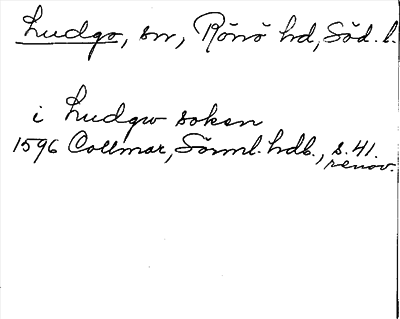 Ludgo, sn, Rönö hd, Söd. l.
i Ludgw soken
1596 Collmar, Sörml. hdb., s. 41.
renov.